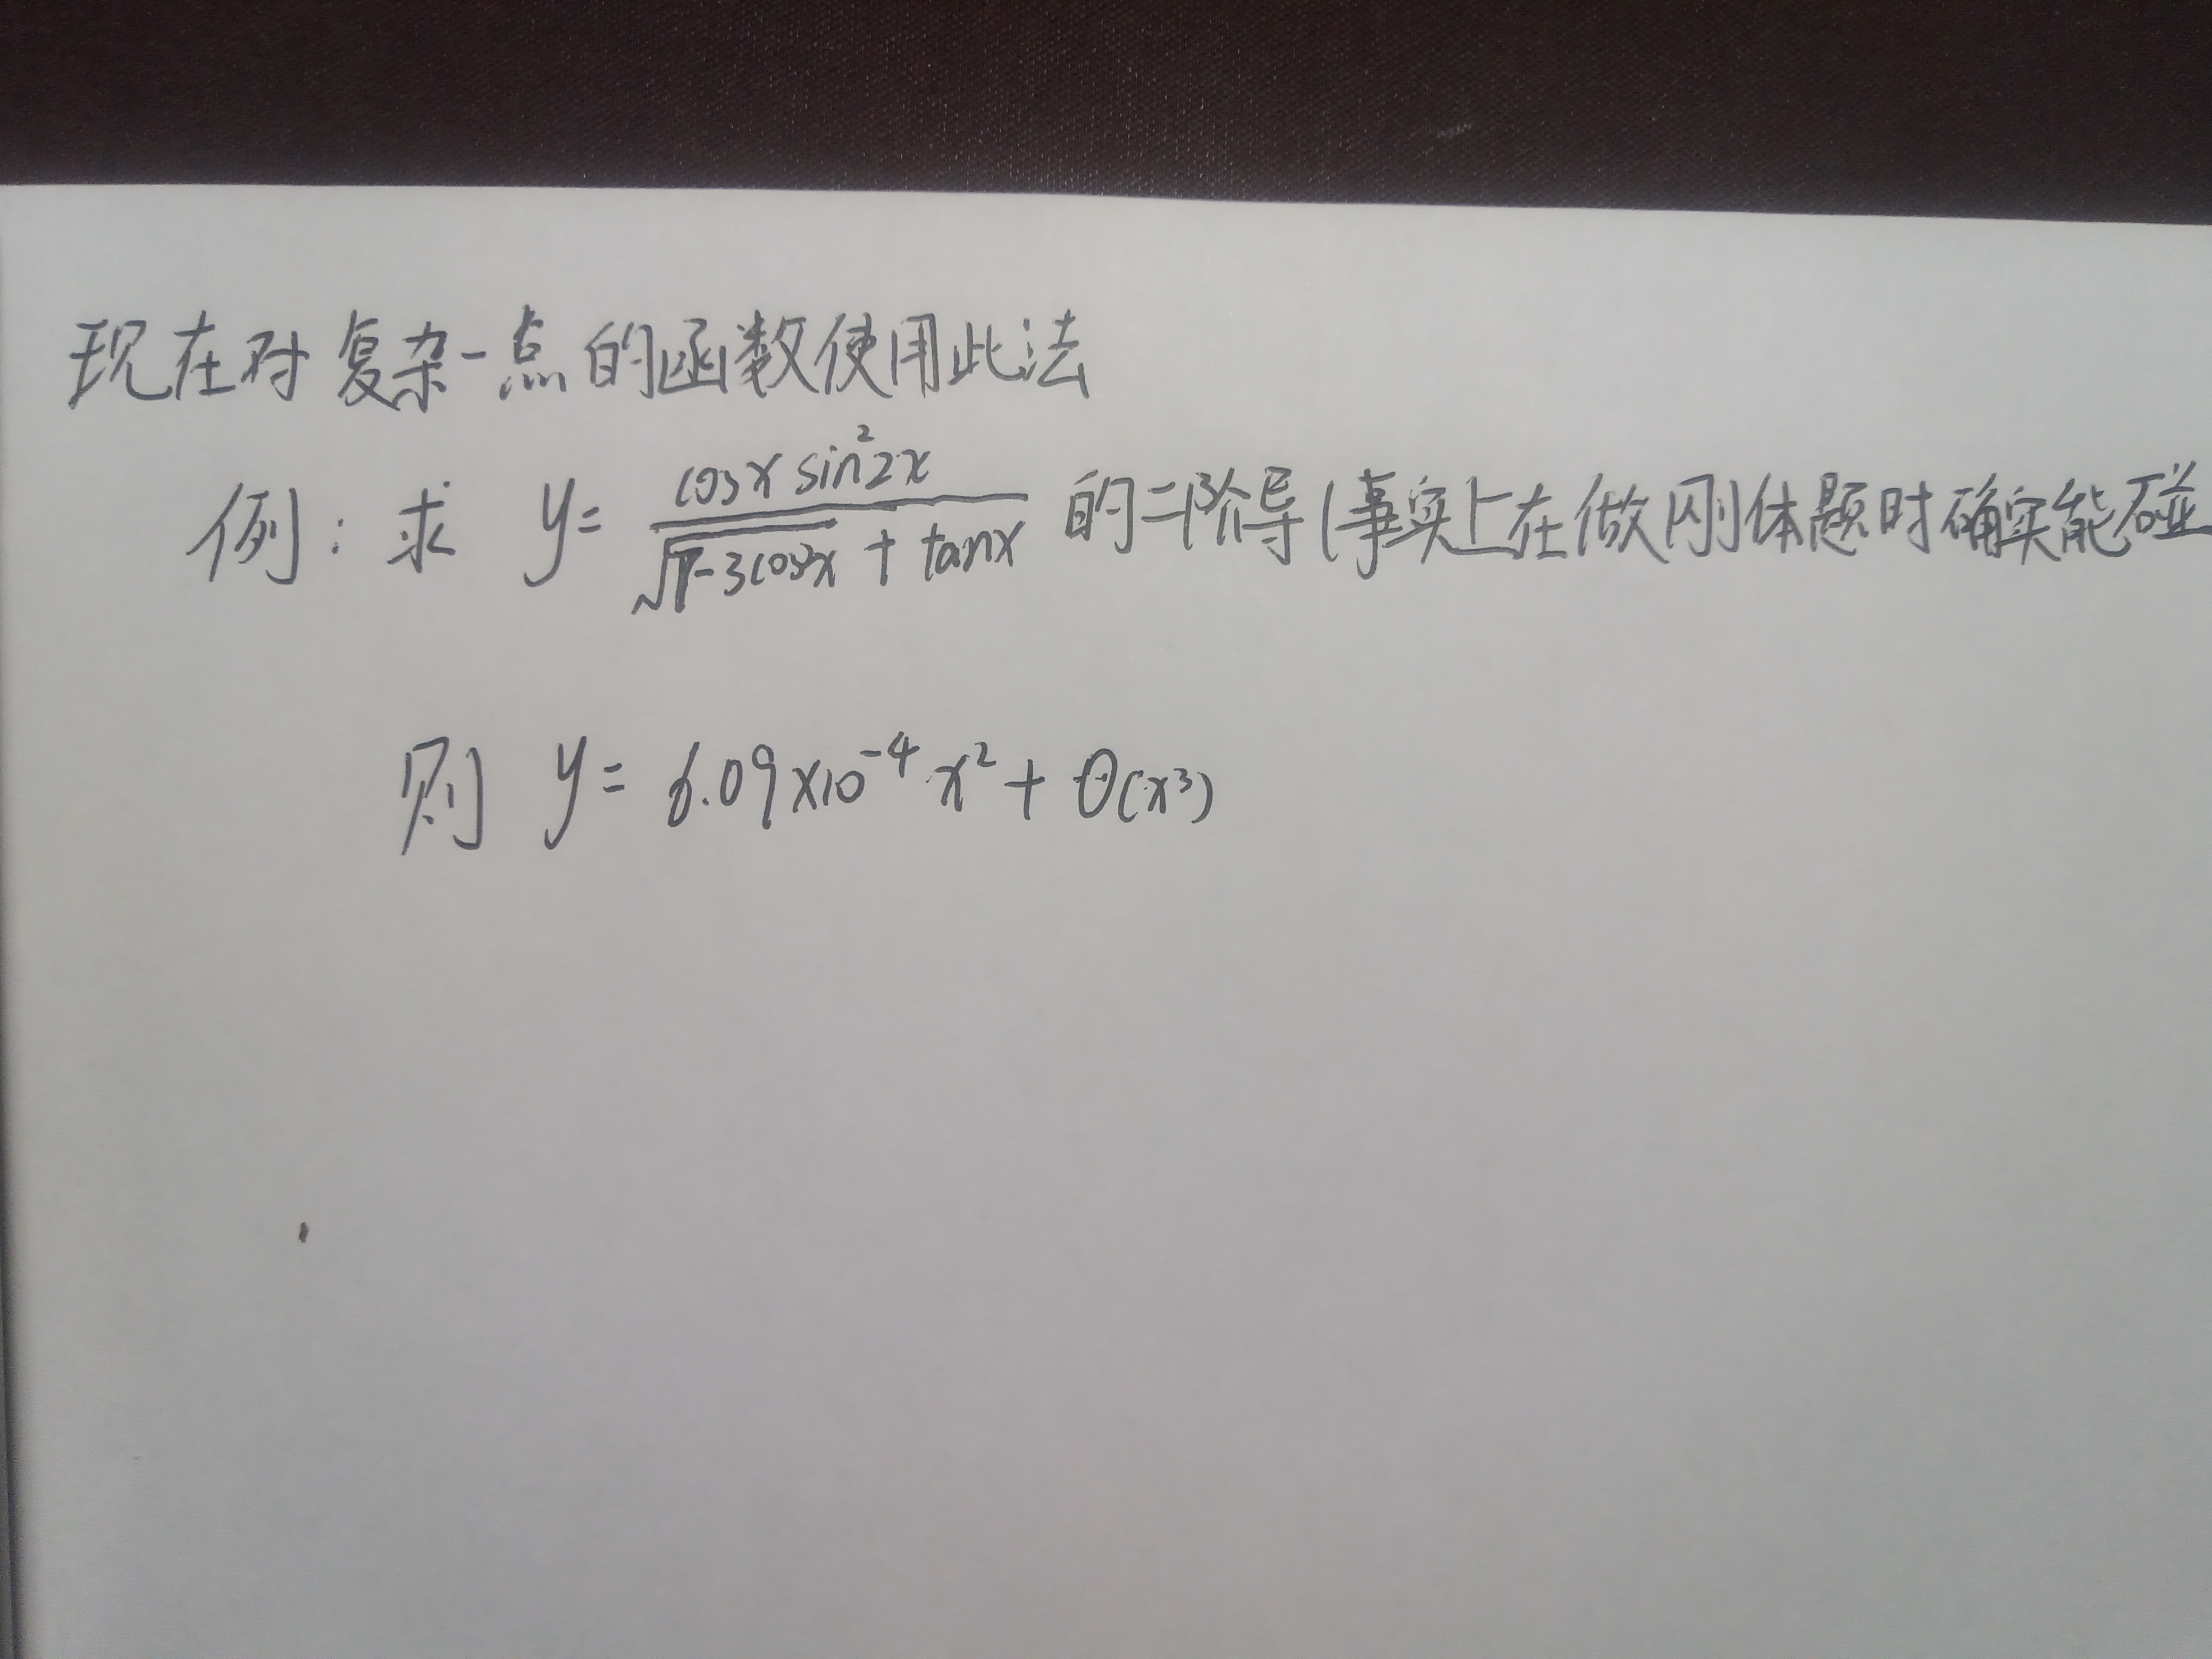 现在对复杂一点的函数使用此法
例：求 y= cosx sin²2x / √(7-3cos²x) + tanx 的二阶导（事实上在做刚体题时确实能碰
则 y= 6.09×10⁻⁴ x² + O(x³)